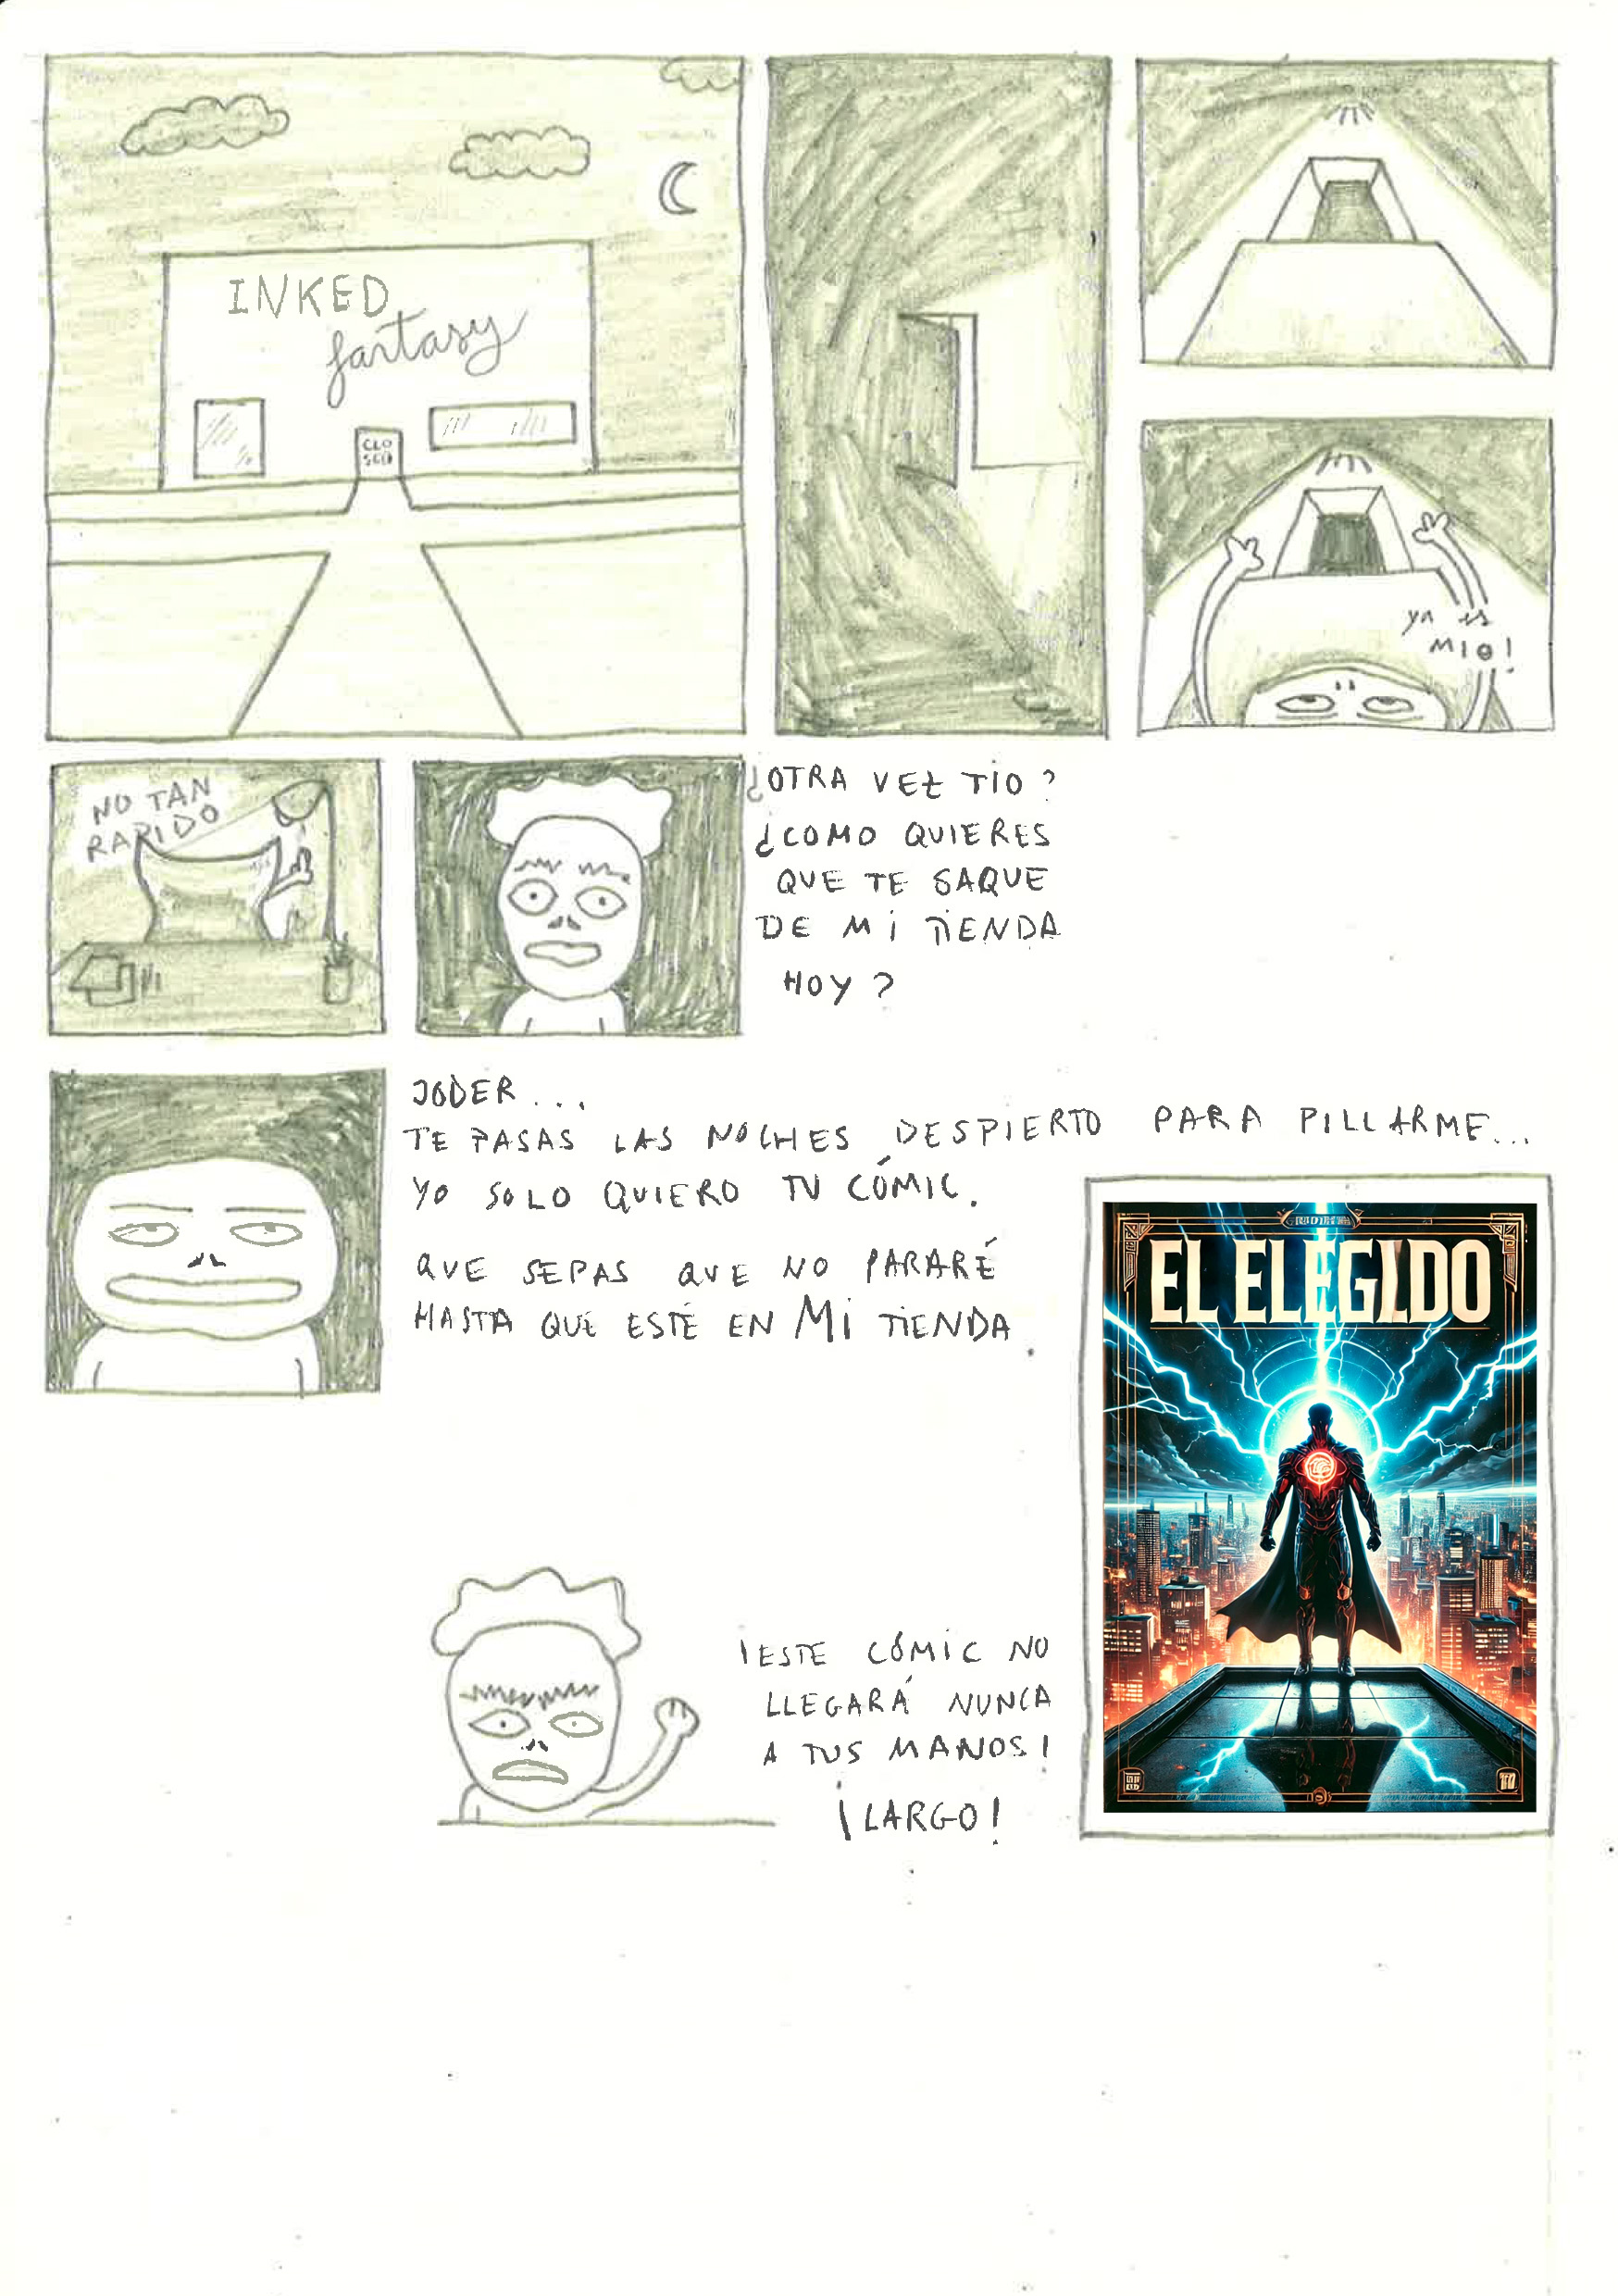 INKED
fantasy
CLO
SED
ya es
MIO!
NO TAN
RAPIDO
¿OTRA VEZ TIO?
¿COMO QUIERES
QUE TE SAQUE
DE Mi TiENDA
HOY?
JODER...
TE PASAS LAS NOCHES DESPIERTO PARA PILLARME...
YO SOLO QUIERO TU CÓMIC.
QUE SEPAS QUE NO PARARÉ
HASTA QUE ESTÉ EN Mi TiENDA.
EL ELEGIDO
¡ESTE CÓMIC NO
LLEGARÁ NUNCA
A TUS MANOS!
¡LARGO!